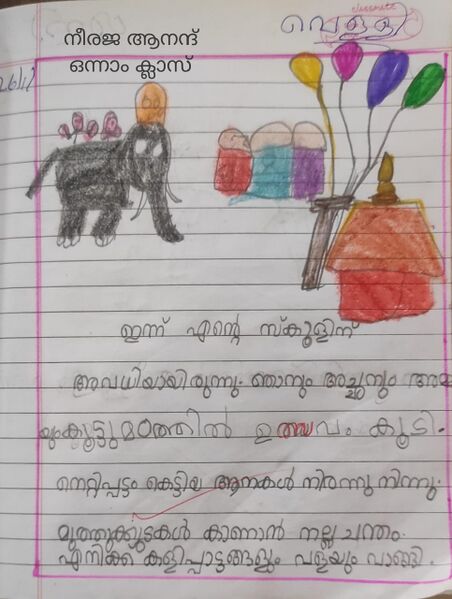 classmate
വെള്ളി
നീരജ ആനന്ദ്
ഒന്നാം ക്ലാസ്
26/11
ഇന്ന് എന്റെ സ്കൂളിന്
അവധിയായിരുന്നു. ഞാനും അച്ഛനും അമ്മ
യുംകൂട്ടുമഠത്തിൽ ഉത്സവം കൂടി.
നെറ്റിപ്പട്ടം കെട്ടിയ ആനകൾ നിരന്നു നിന്നു.
മുത്തുക്കുടകൾ കാണാൻ നല്ല ചന്തം.
എനിക്ക് കളിപ്പാട്ടങ്ങളും വളയും വാങ്ങി.